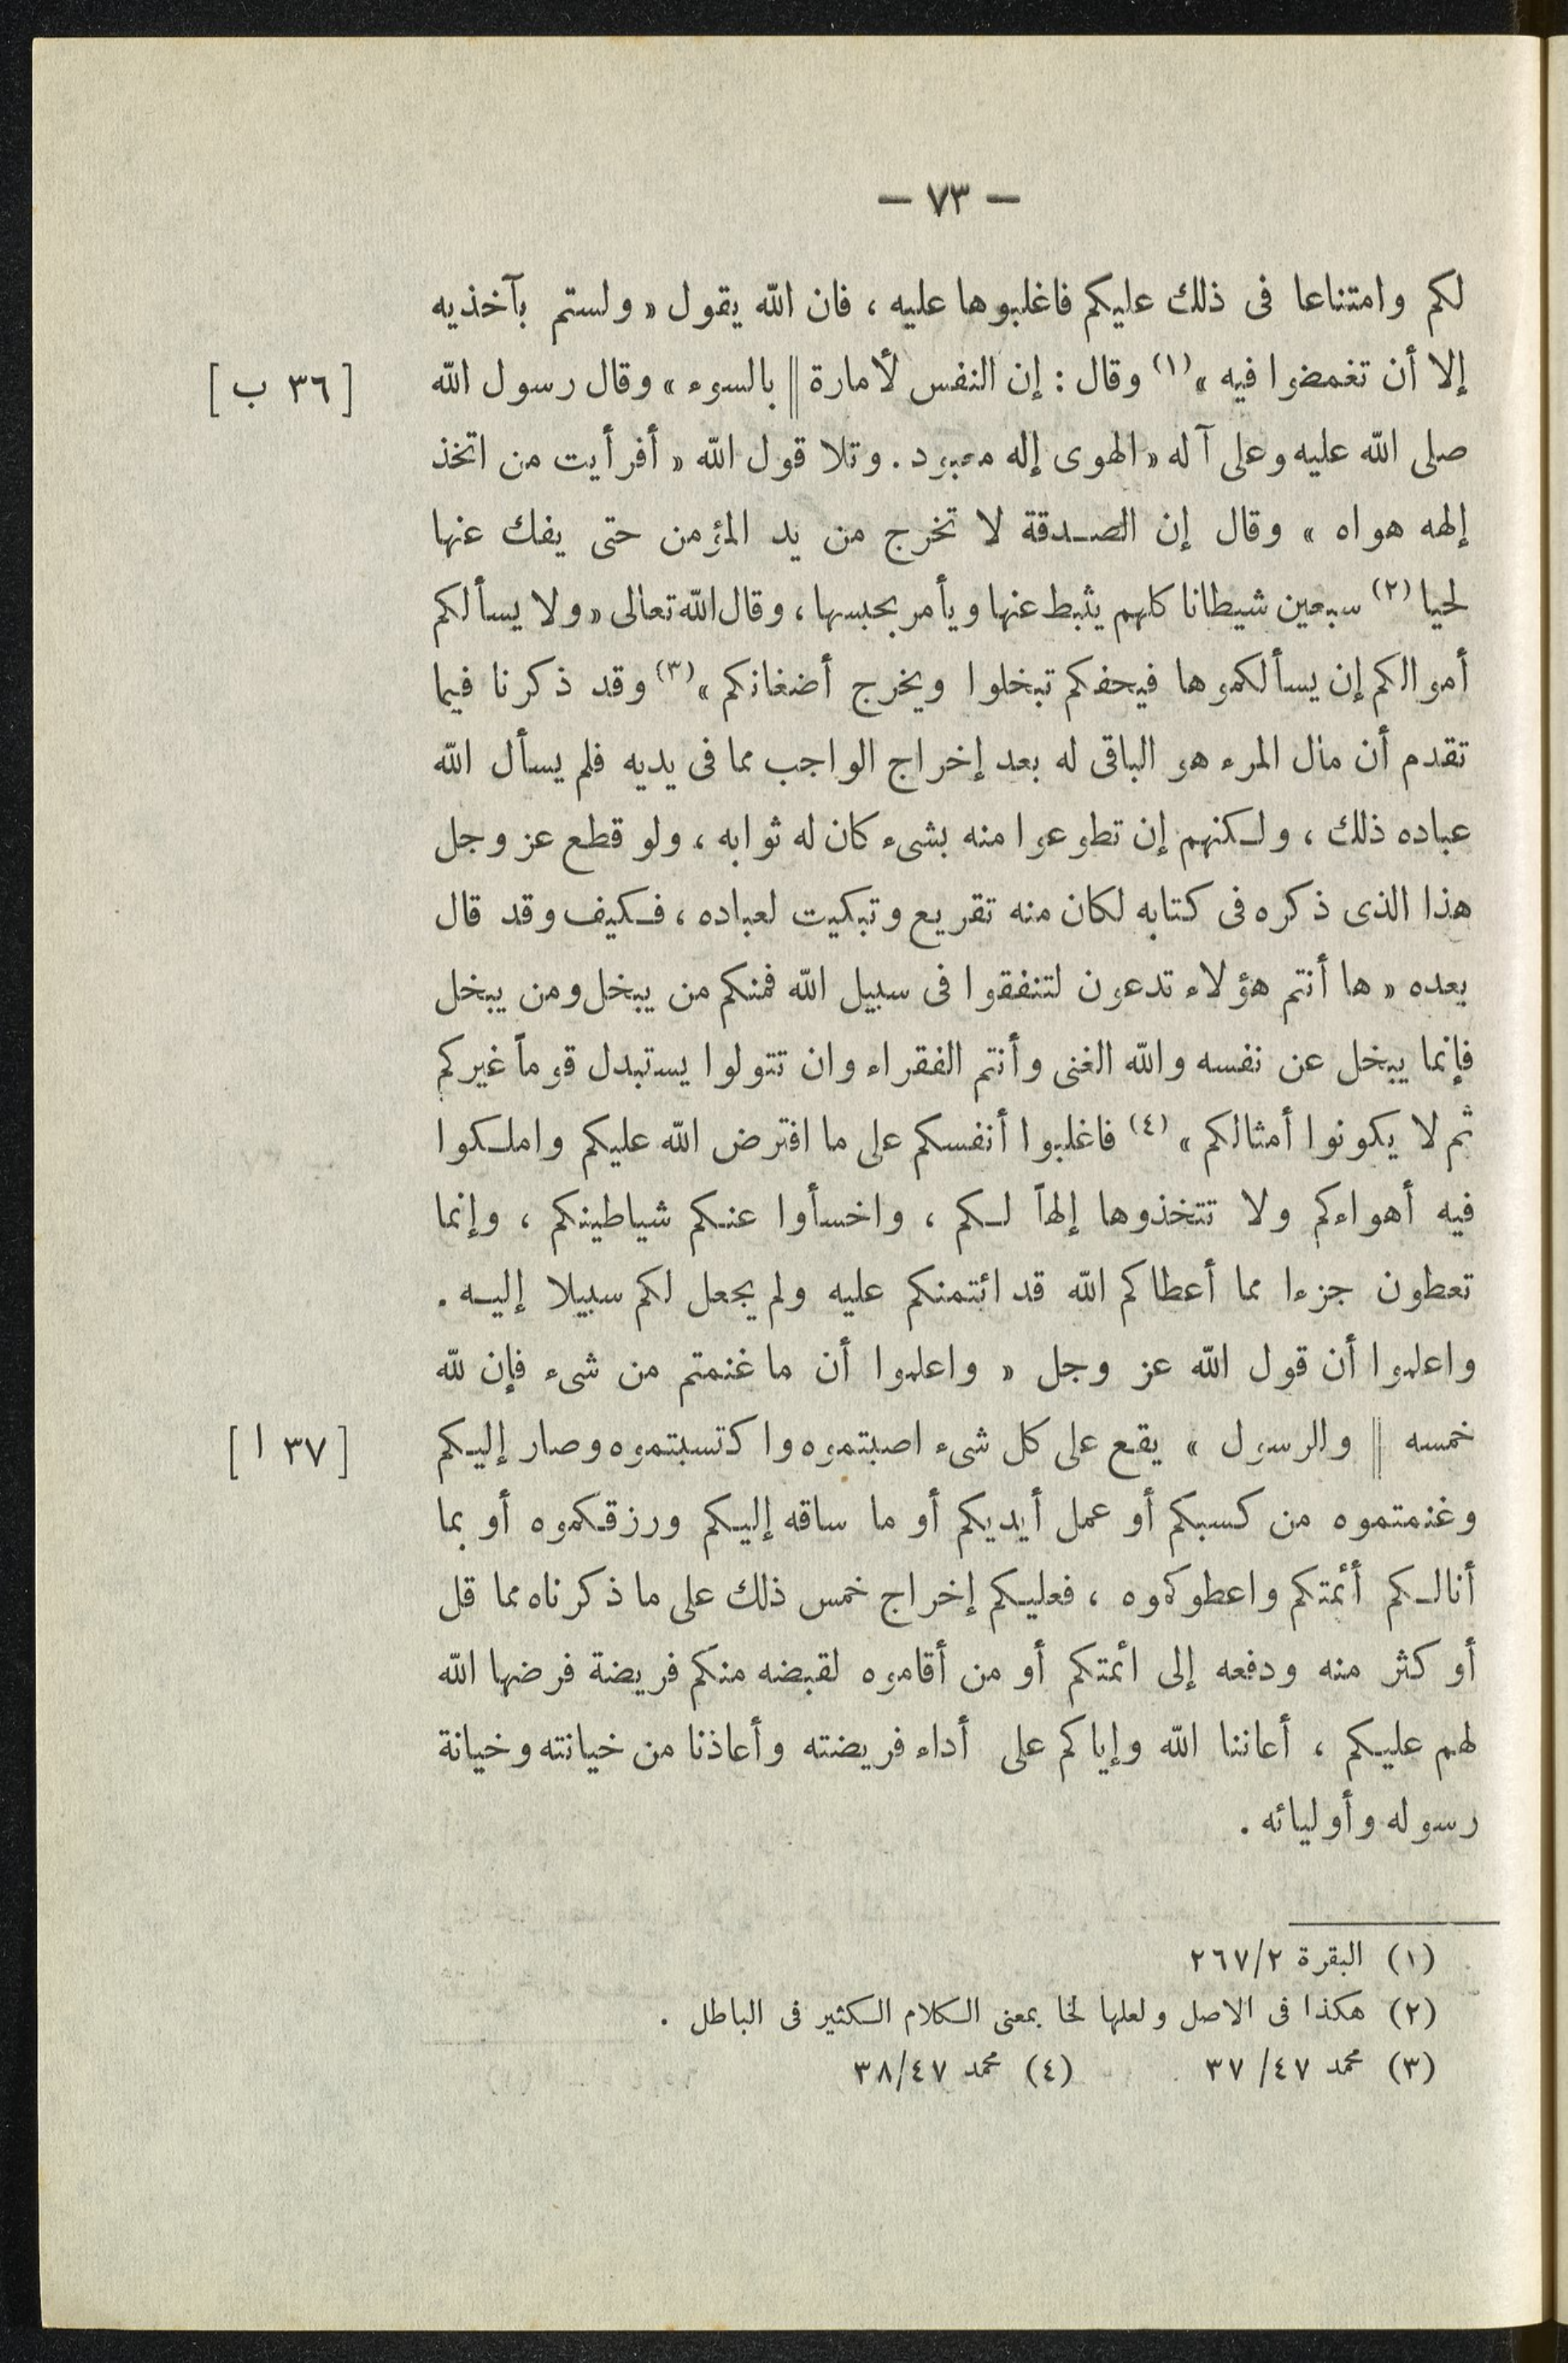 — ٧٣ —
لكم وامتناعا فى ذلك عليكم فاغلبوها عليه ، فان الله يقول « ولستم بآخذيه
إلا أن تغمضوا فيه »(١) وقال : إن النفس لأمارة || بالسوء » وقال رسول الله [ ٣٦ ب ]
صلى الله عليه وعلى آله « الهوى إله معبود . وتلا قول الله « أفرأيت من اتخذ
إلهه هواه » وقال إن الصدقة لا تخرج من يد المؤمن حتى يفك عنها
لحيا (٢) سبعين شيطانا كلهم يثبط عنها ويأمر بحبسها ، وقال الله تعالى « ولا يسألكم
أموالكم إن يسألكموها فيحفكم تبخلوا ويخرج أضغانكم »(٣) وقد ذكرنا فيما
تقدم أن مال المرء هو الباقى له بعد إخراج الواجب مما فى يديه فلم يسأل الله
عباده ذلك ، ولكنهم إن تطوعوا منه بشىء كان له ثوابه ، ولو قطع عز وجل
هذا الذى ذكره فى كتابه لكان منه تقريع وتبكيت لعباده ، فكيف وقد قال
بعده « ها أنتم هؤلاء تدعون لتنفقوا فى سبيل الله فمنكم من يبخل ومن يبخل
فإنما يبخل عن نفسه والله الغنى وأنتم الفقراء وان تتولوا يستبدل قوماً غيركم
ثم لا يكونوا أمثالكم » (٤) فاغلبوا أنفسكم على ما افترض الله عليكم واملكوا
فيه أهواءكم ولا تتخذوها إلهاً لكم ، واخسأوا عنكم شياطينكم ، وإنما
تعطون جزءا مما أعطاكم الله قد ائتمنكم عليه ولم يجعل لكم سبيلا إليه .
واعلموا أن قول الله عز وجل « واعلموا أن ما غنمتم من شىء فإن لله
خمسه || والرسول » يقع على كل شىء اصبتموه واكتسبتموه وصار إليكم [ ٣٧ ا ]
وغنمتموه من كسبكم أو عمل أيديكم أو ما ساقه إليكم ورزقكموه أو بما
أنالكم أئمتكم واعطوكموه ، فعليكم إخراج خمس ذلك على ما ذكرناه مما قل
أو كثر منه ودفعه إلى ائمتكم أو من أقاموه لقبضه منكم فريضة فرضها الله
لهم عليكم ، أعاننا الله وإياكم على أداء فريضته وأعاذنا من خيانته وخيانة
رسوله وأوليائه .
(١) البقرة ٢٦٧/٢
(٢) هكذا فى الاصل ولعلها لخا بمعنى الكلام الكثير فى الباطل .
(٣) محمد ٤٧/ ٣٧ (٤) محمد ٣٨/٤٧